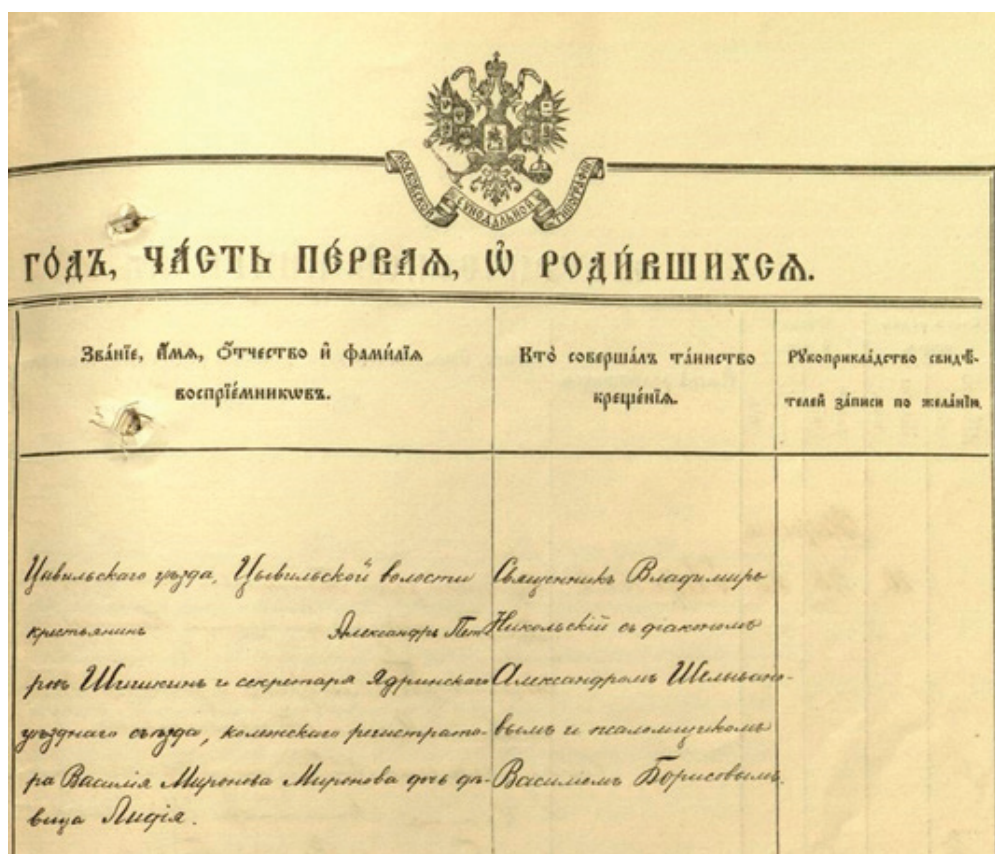 МОСКОВСКОЙ СѴНОДАЛЬНОЙ ТИПОГРАФІИ
ГО́ДЪ, ЧА́СТЬ ПЕ́РВАѦ, Ѽ РОДИ́ВШИХСѦ.
Зва́нїе, и҆́мѧ, ѻ҆́тчество и҆ фами́лїѧ
воспрїе́мникѡвъ.
Кто̀ соверша́лъ та́инство
креще́нїѧ.
Рꙋкоприкла́дство свидѣ́-
телей за́писи по жела́нїю.
Цивильскаго уѣзда, Цывильской волости
крестьянинъ Александръ Пет-
ровъ Шишкинъ и секретаря Ядринскаго
уѣзднаго съѣзда, коллежскаго регистрато-
ра Василія Миронова Миронова дочь дѣ-
вица Лидія.
Священникъ Владимиръ
Никольскій съ діакономъ
Александромъ
вымъ и псаломщикомъ
Василіемъ Борисовымъ.